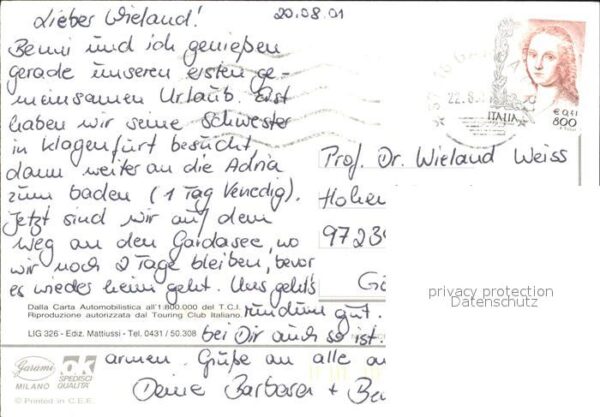 Lieber Wieland!
20.08.01
Benni und ich genießen
gerade unseren ersten ge-
meinsamen Urlaub. Erst
haben wir seine Schwester
in Klagenfurt besucht,
dann weiter an die Adria
zum baden (1 Tag Venedig).
Jetzt sind wir auf dem
Weg an den Gardasee, wo
wir noch 2 Tage bleiben, bevor
es wieder heim geht. Uns geht's
rundum gut.
bei Dir auch so ist.
armen. Grüße an alle
Deine Barbara +
22.8.
ITALIA
€ 0,41
800
Prof. Dr. Wieland Weiss
Hohen
9723
privacy protection
Datenschutz
Dalla Carta Automobilistica all'1:800.000 del T.C.I.
Riproduzione autorizzata dal Touring Club Italiano.
LIG 326 - Ediz. Mattiussi - Tel. 0431 / 50.308
Garami
MILANO
OK
SPEDISCI
QUALITA'
© Printed in C.E.E.